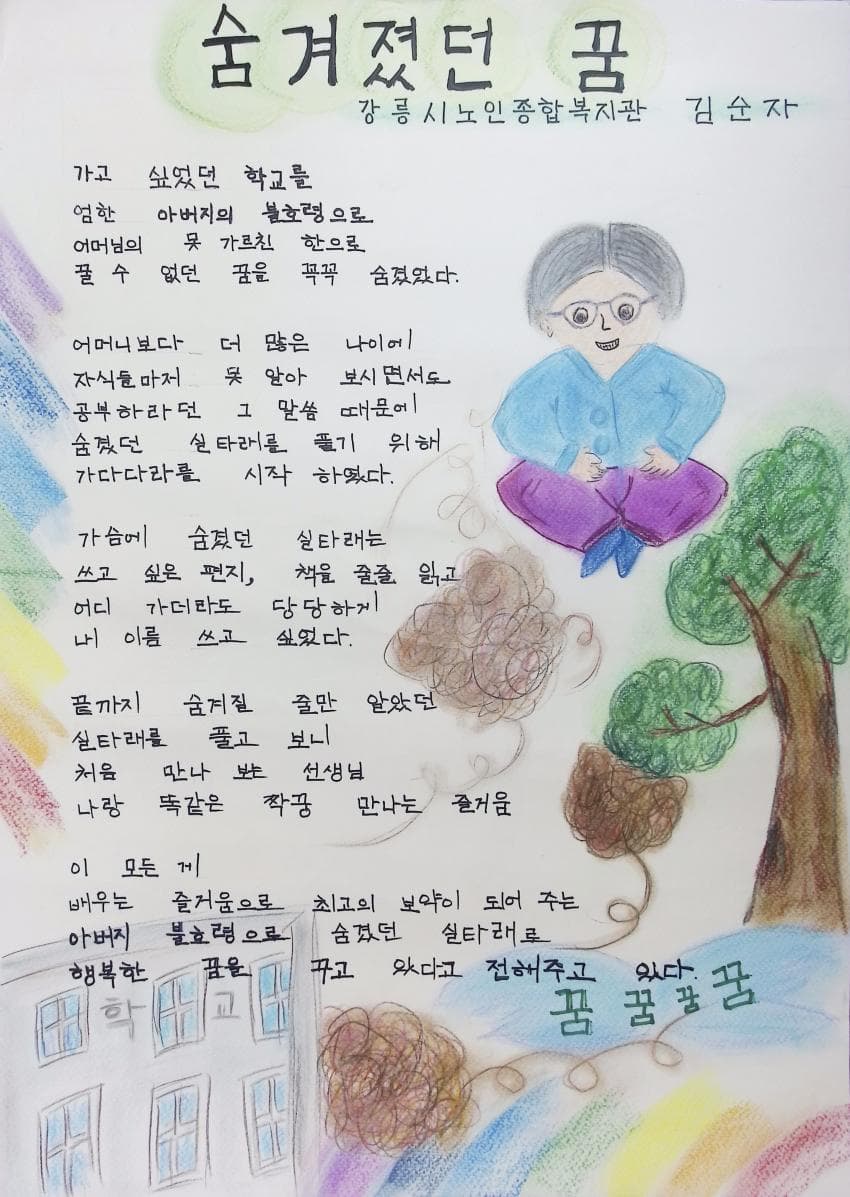 숨겨졌던 꿈
강릉시노인종합복지관 김순자
가고 싶었던 학교를
엄한 아버지의 불호령으로
어머님의 못 가르친 한으로
꿀 수 없던 꿈을 꼭꼭 숨겼았다.
어머니보다 더 많은 나이에
자식들마저 못 알아 보시면서도
공부하라던 그 말씀 때문에
숨겼던 실타래를 풀기 위해
가다다라를 시작 하였다.
가슴에 숨겼던 실타래는
쓰고 싶은 편지, 책을 줄줄 읽고
어디 가더라도 당당하게
내 이름 쓰고 싶었다.
끝까지 숨겨질 줄만 알았던
실타래를 풀고 보니
처음 만나 보는 선생님
나랑 똑같은 짝꿍 만나는 즐거움
이 모든 게
배우는 즐거움으로 최고의 보약이 되어 주는
아버지 불호령으로 숨겼던 실타래로
행복한 꿈을 꾸고 있다고 전해주고 있다.
꿈 꿈 꿈 꿈
학교